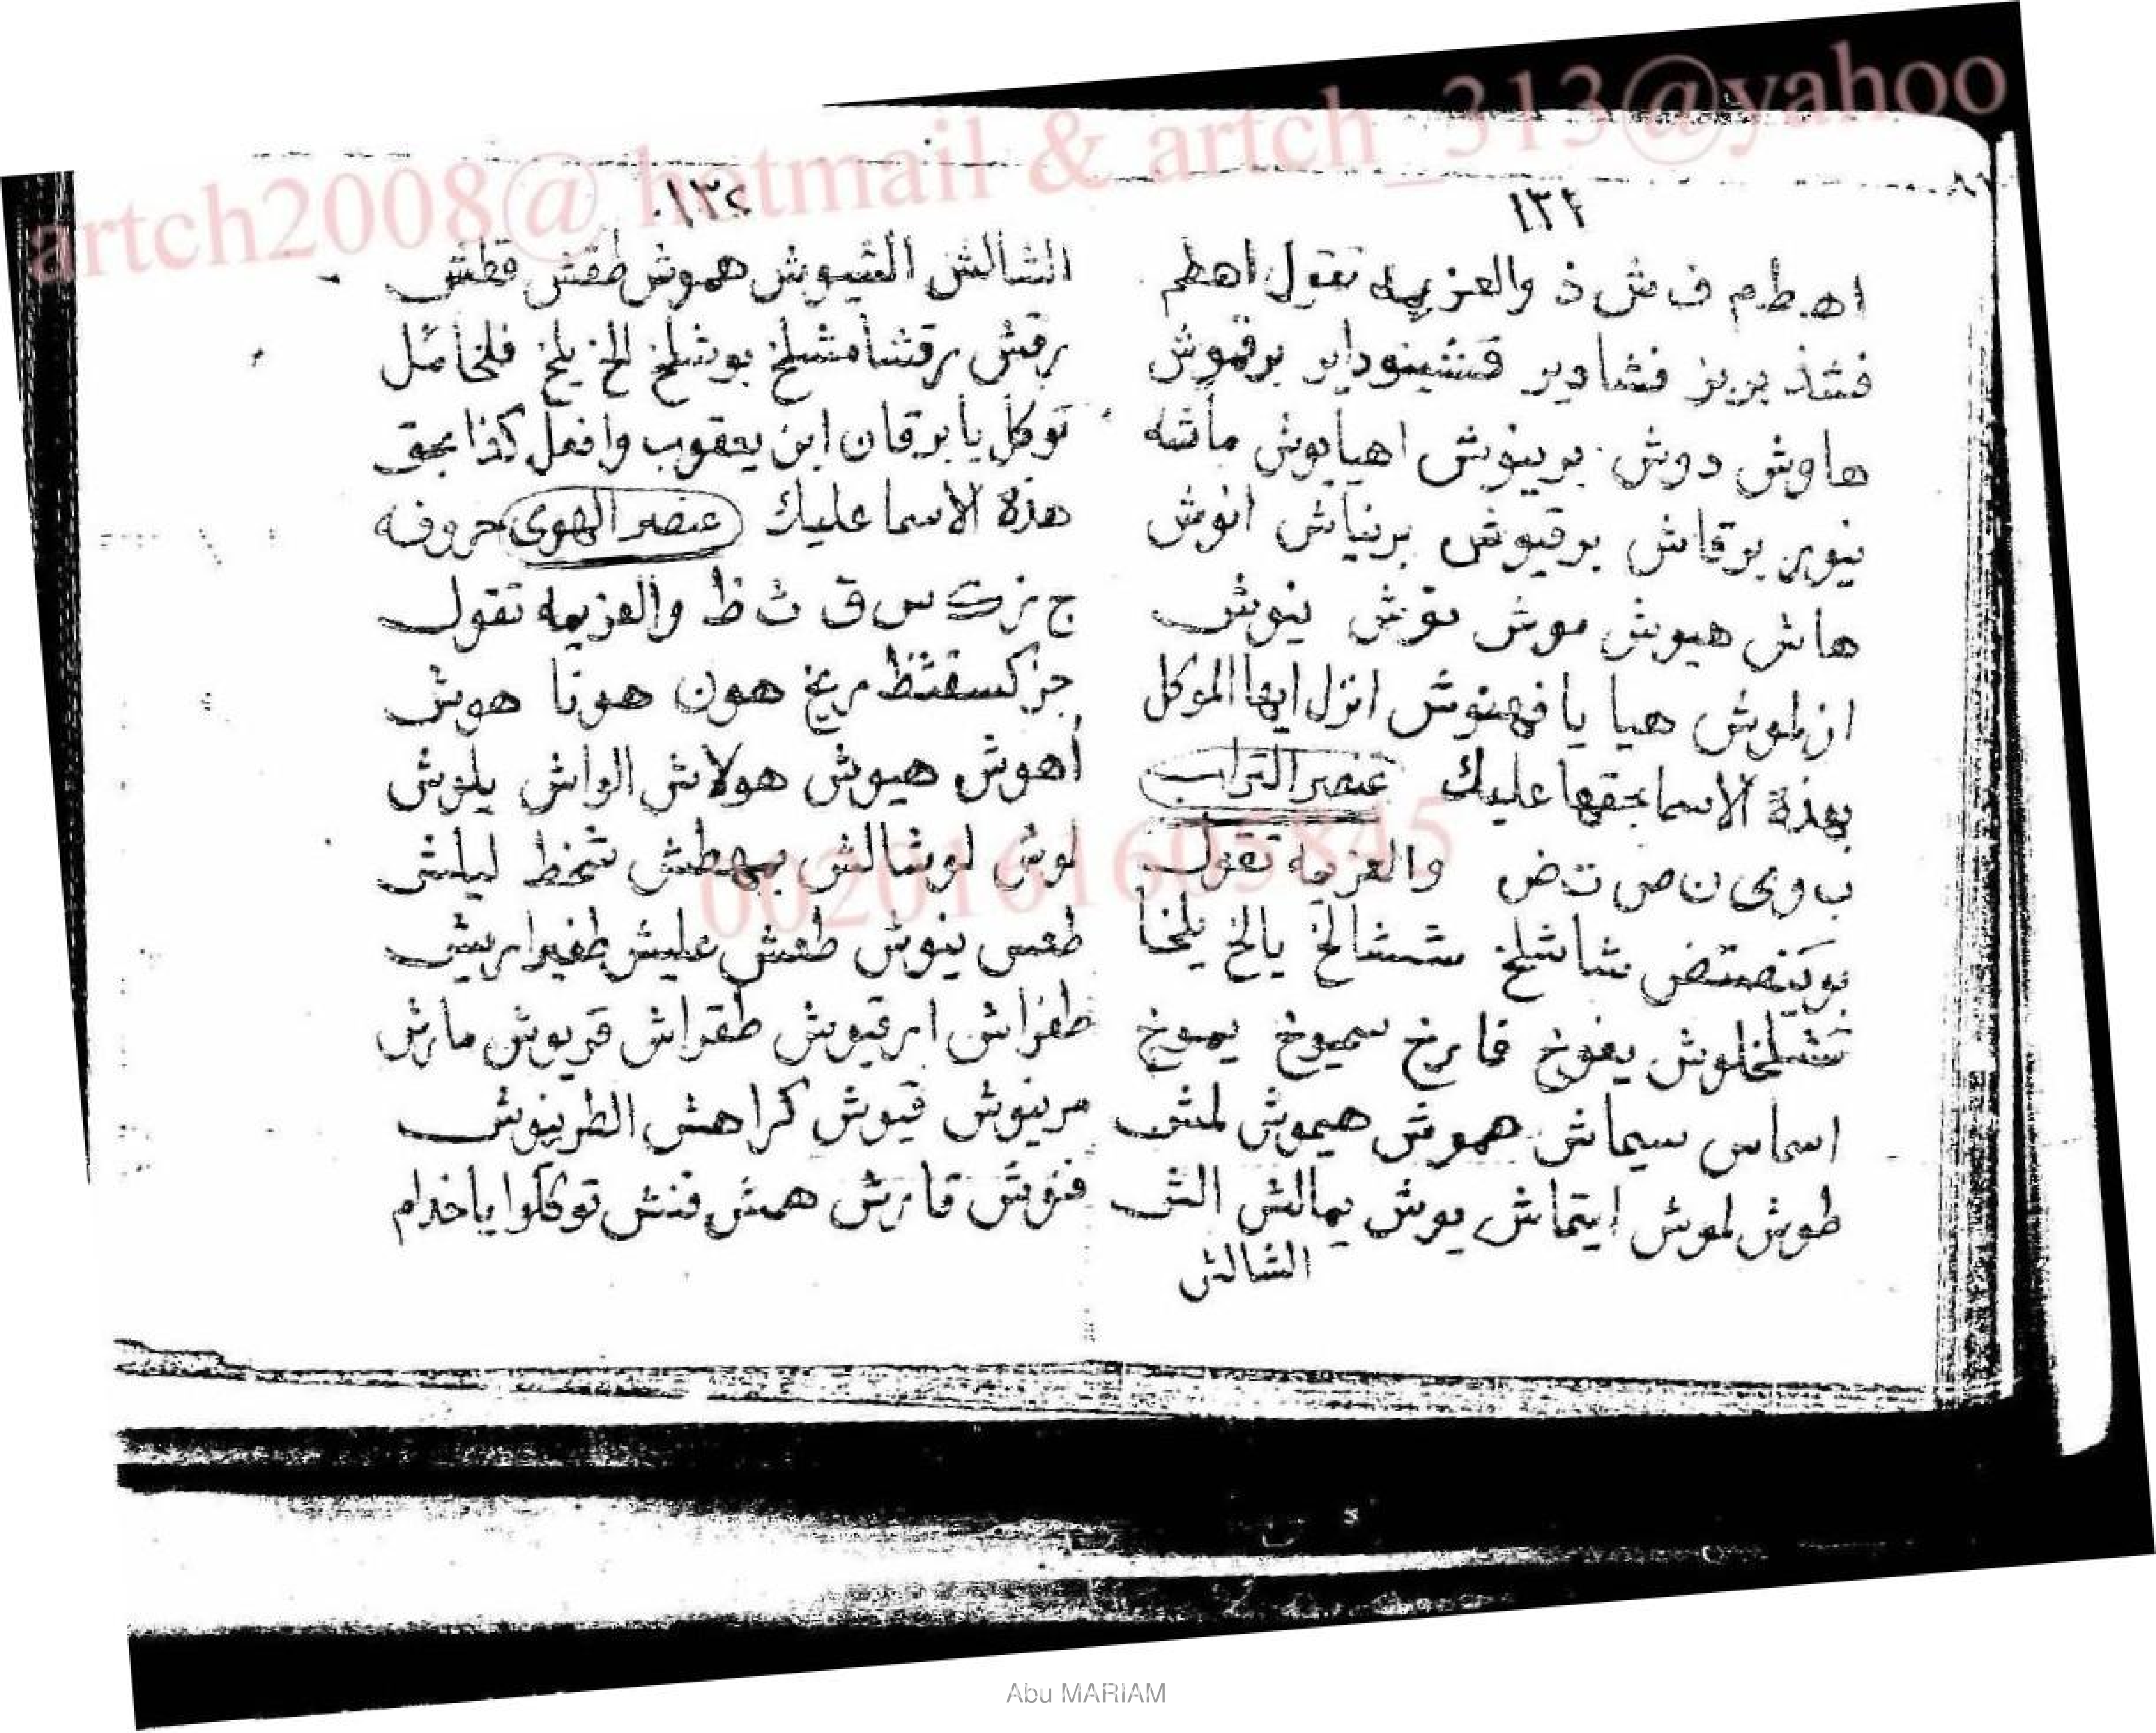 artch2008@ hotmail & artch_313@yahoo
١٣١
اهـ ط م ف ش ذ والعزيمه تقول اهطم
فشذ بربز فشاوير قنشينوداير برقموش
هاوش دوش برينوش اهيابوش
برقاش برقيوش برنياش انوش
هاش هيوش موش ينوش
هيا يا فهنوش انزل ايها الموكل
بهذة الاسما بحقها عليك عنصر التراب
ب و ى ن ص ت ض والعزيمه تقول
بوينصتض شاشلخ شمشالخ يالخ يلخا
يفوخ سميوخ يموخ
اسماس سيماش هموش هيموش لمش
طوش لموش ايتماش يوش يمالش الش
الشالش
١٣٢
الشالش الشيوش هموش طقش قطش
برقش برقشا مشلخ بوشلخ الخ يلخ
توكل يا برقان ابن يعقوب وافعل كذا بحق
هذة الاسما عليك عنصر الهوى حروفه
ج ز ك س ق ث ظ والعزيمه تقول
جزكسقثظ مريخ هون هونا هوش
أهوش هيوش هولاش الواش يلوش
لوش لوشالش بهطش شخط ليلش
ينوش طعش عليش
طفراش ابرقيوش طقراش قريوش مارش
مرينوش قيوش كراهش الطرينوش
فنوش قارش همش فنش توكلوا يا خدام
00201616093845
Abu MARIAM